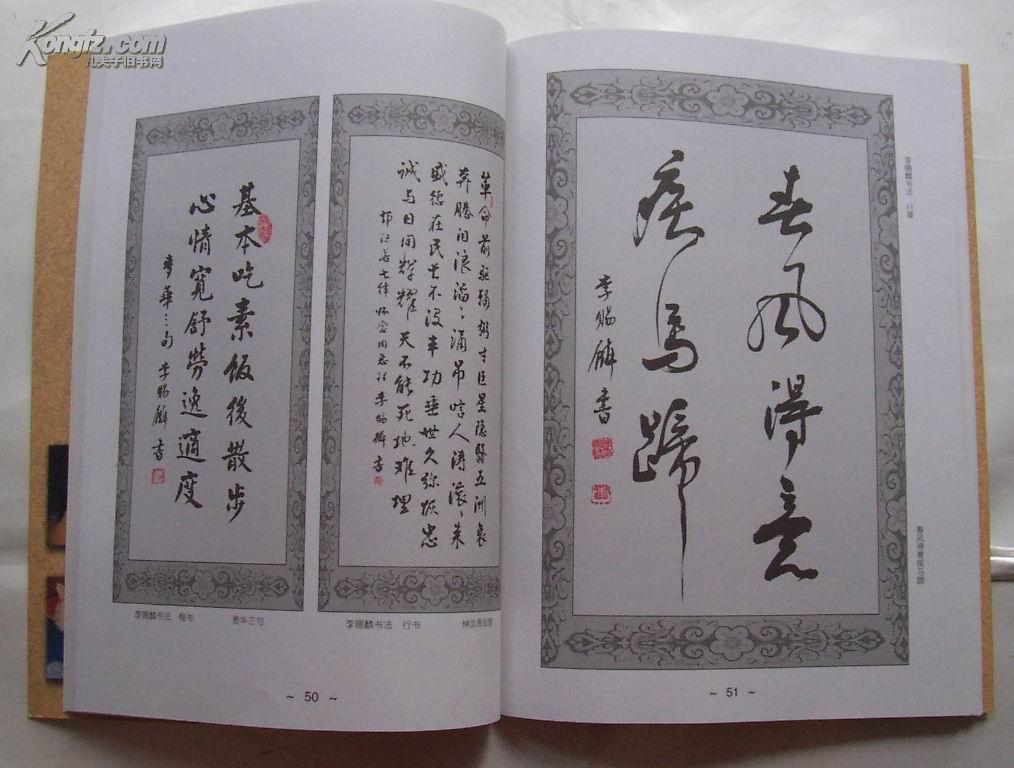 Kongfz.com
孔夫子旧书网
基本吃素饭後散步
心情寬舒勞逸適度
華三句 李赐麟书
李赐麟书法 楷书 华三句
革命前驱辅弼才巨星隐翳五洲哀
奔腾泪浪滔滔涌吊唁人涛滚滚来
盛德在民长不没丰功垂世久弥恢忠
诚与日同辉耀天不能死地难埋
郭沫若七律怀念周总理李赐麟书
李赐麟书法 行书 悼念周总理
~ 50 ~
春风得意
疾马蹄
李赐麟書
李赐麟书法 行草
春风得意疾马蹄
~ 51 ~